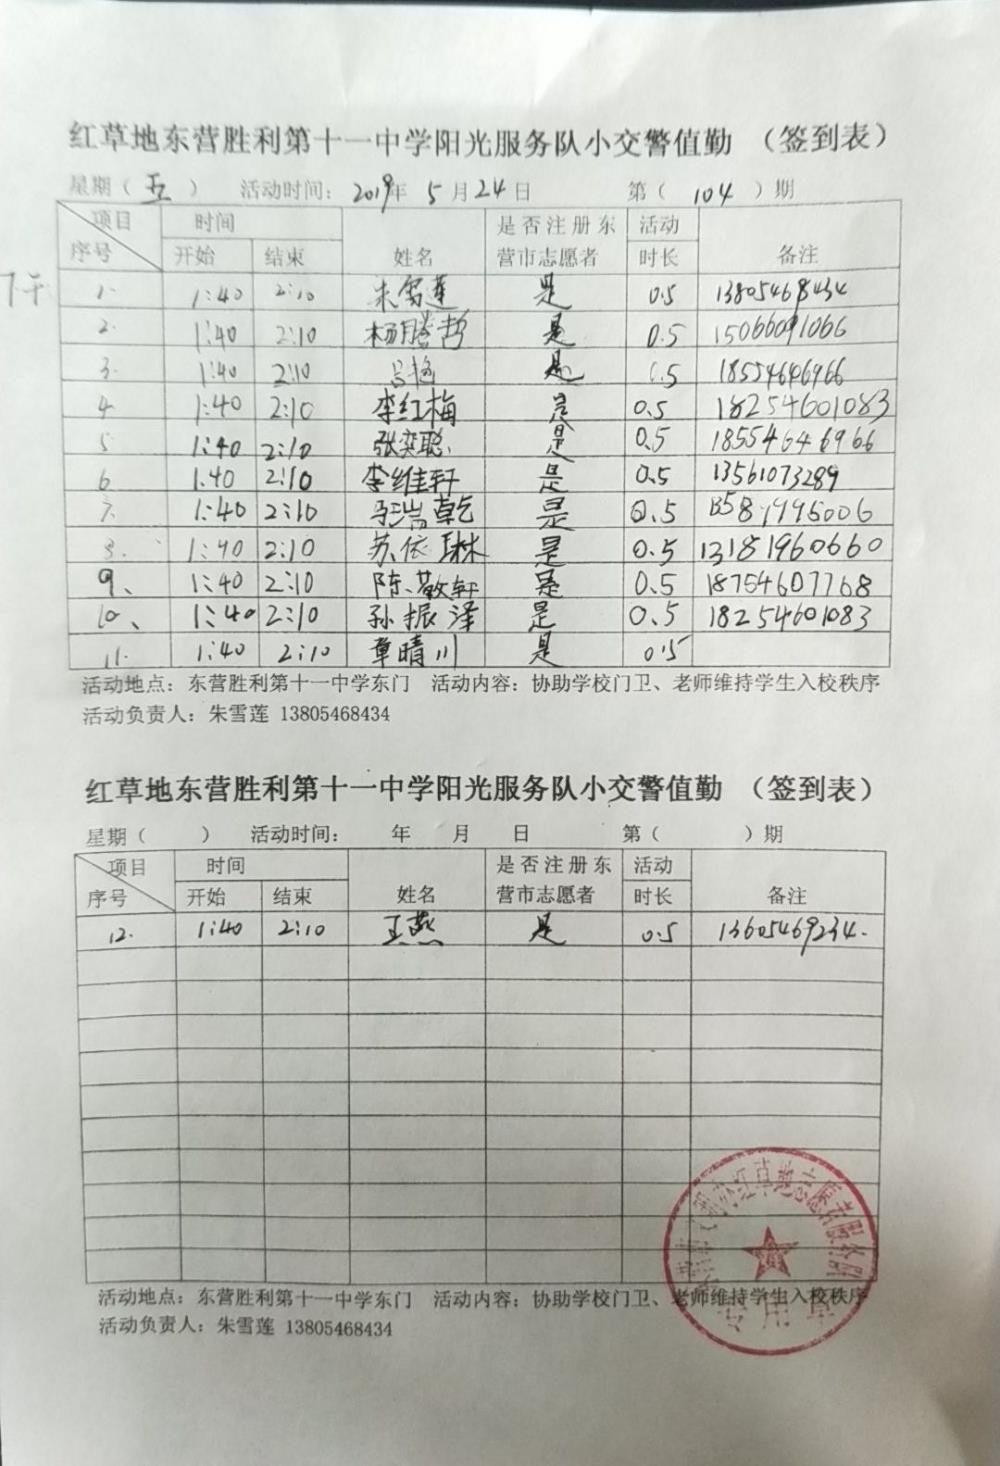 红草地东营胜利第十一中学阳光服务队小交警值勤 （签到表）
星期（ 五 ） 活动时间： 2019年 5 月 24 日 第（ 104 ）期
项目 时间 是否注册东 活动
序号 开始 结束 姓名 营市志愿者 时长 备注
下午
1. 1:40 2:10 朱雪莲 是 0.5 13805468434
2. 1:40 2:10 杨腾哲 是 0.5 15066091066
3. 1:40 2:10 是 0.5 18554646966
4 1:40 2:10 李红梅 是 0.5 18254601083
5 1:40 2:10 张奕聪 是 0.5 18554646966
6 1:40 2:10 李维轩 是 0.5 13561073289
1:40 2:10 是 0.5
8. 1:40 2:10 苏依琳 是 0.5 13181960660
9、 1:40 2:10 陈敬轩 是 0.5 18754607768
10、 1:40 2:10 孙振泽 是 0.5 18254601083
11. 1:40 2:10 章晴川 是 0.5
活动地点：东营胜利第十一中学东门 活动内容：协助学校门卫、老师维持学生入校秩序
活动负责人：朱雪莲 13805468434
红草地东营胜利第十一中学阳光服务队小交警值勤 （签到表）
星期（ ） 活动时间： 年 月 日 第（ ）期
项目 时间 是否注册东 活动
序号 开始 结束 姓名 营市志愿者 时长 备注
12. 1:40 2:10 王燕 是 0.5 13605469234.
红草地志愿者服务队
活动地点：东营胜利第十一中学东门 活动内容：协助学校门卫、老师维持学生入校秩序
专用章
活动负责人：朱雪莲 13805468434